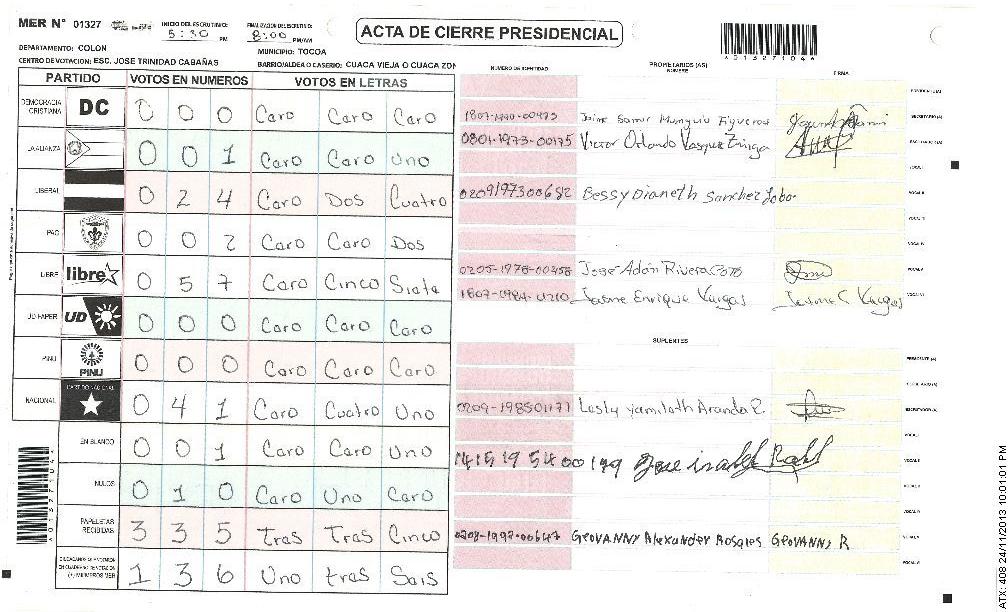 MER N° 01327
INICIO DEL ESCRUTINIO: 5:30 PM
FINALIZACION DEL ESCRUTINIO: 8:00 PM/AM
ACTA DE CIERRE PRESIDENCIAL
DEPARTAMENTO: COLON
MUNICIPIO: TOCOA
CENTRO DE VOTACION: ESC. JOSE TRINIDAD CABAÑAS
BARRIO/ALDEA O CASERIO: CUACA VIEJA O CUACA ZON
PARTIDO VOTOS EN NUMEROS VOTOS EN LETRAS
DEMOCRACIA CRISTIANA DC 0 0 0 Caro Caro Caro
LA ALIANZA 0 0 1 Caro Caro Uno
LIBERAL 0 2 4 Caro Dos Cuatro
PAC 0 0 2 Caro Caro Dos
LIBRE libre 0 5 7 Caro Cinco Siata
UD FAPER UD 0 0 0 Caro Caro Caro
PINU PINU 0 0 0 Caro Caro Caro
NACIONAL PARTIDO NACIONAL 0 4 1 Caro Cuatro Uno
EN BLANCO 0 0 1 Caro Caro Uno
NULOS 0 1 0 Caro Uno Caro
PAPELETAS RECIBIDAS 3 3 5 tras tras Cinco
(+) MIEMBROS MER 1 3 6 Uno tras Sais
NUMERO DE IDENTIDAD PROPIETARIOS (AS) NOMBRE FIRMA
Munguia Figueroa
0801-1973-00175 Victor Orlando Vasquez Zuniga
0209197300682 Bessy Dianeth Sanchez Lobo
0205-1978-00458 José Adán Rivera Coto
Jaime Enrique Vargas
SUPLENTES
0209-198501171 Lesly Yamileth Aranda
1415195400149 Jose isabel
Geovanny Alexander Rosales Geovanny R
A013271046
ATX: 408 24/11/2013 10:01:01 PM